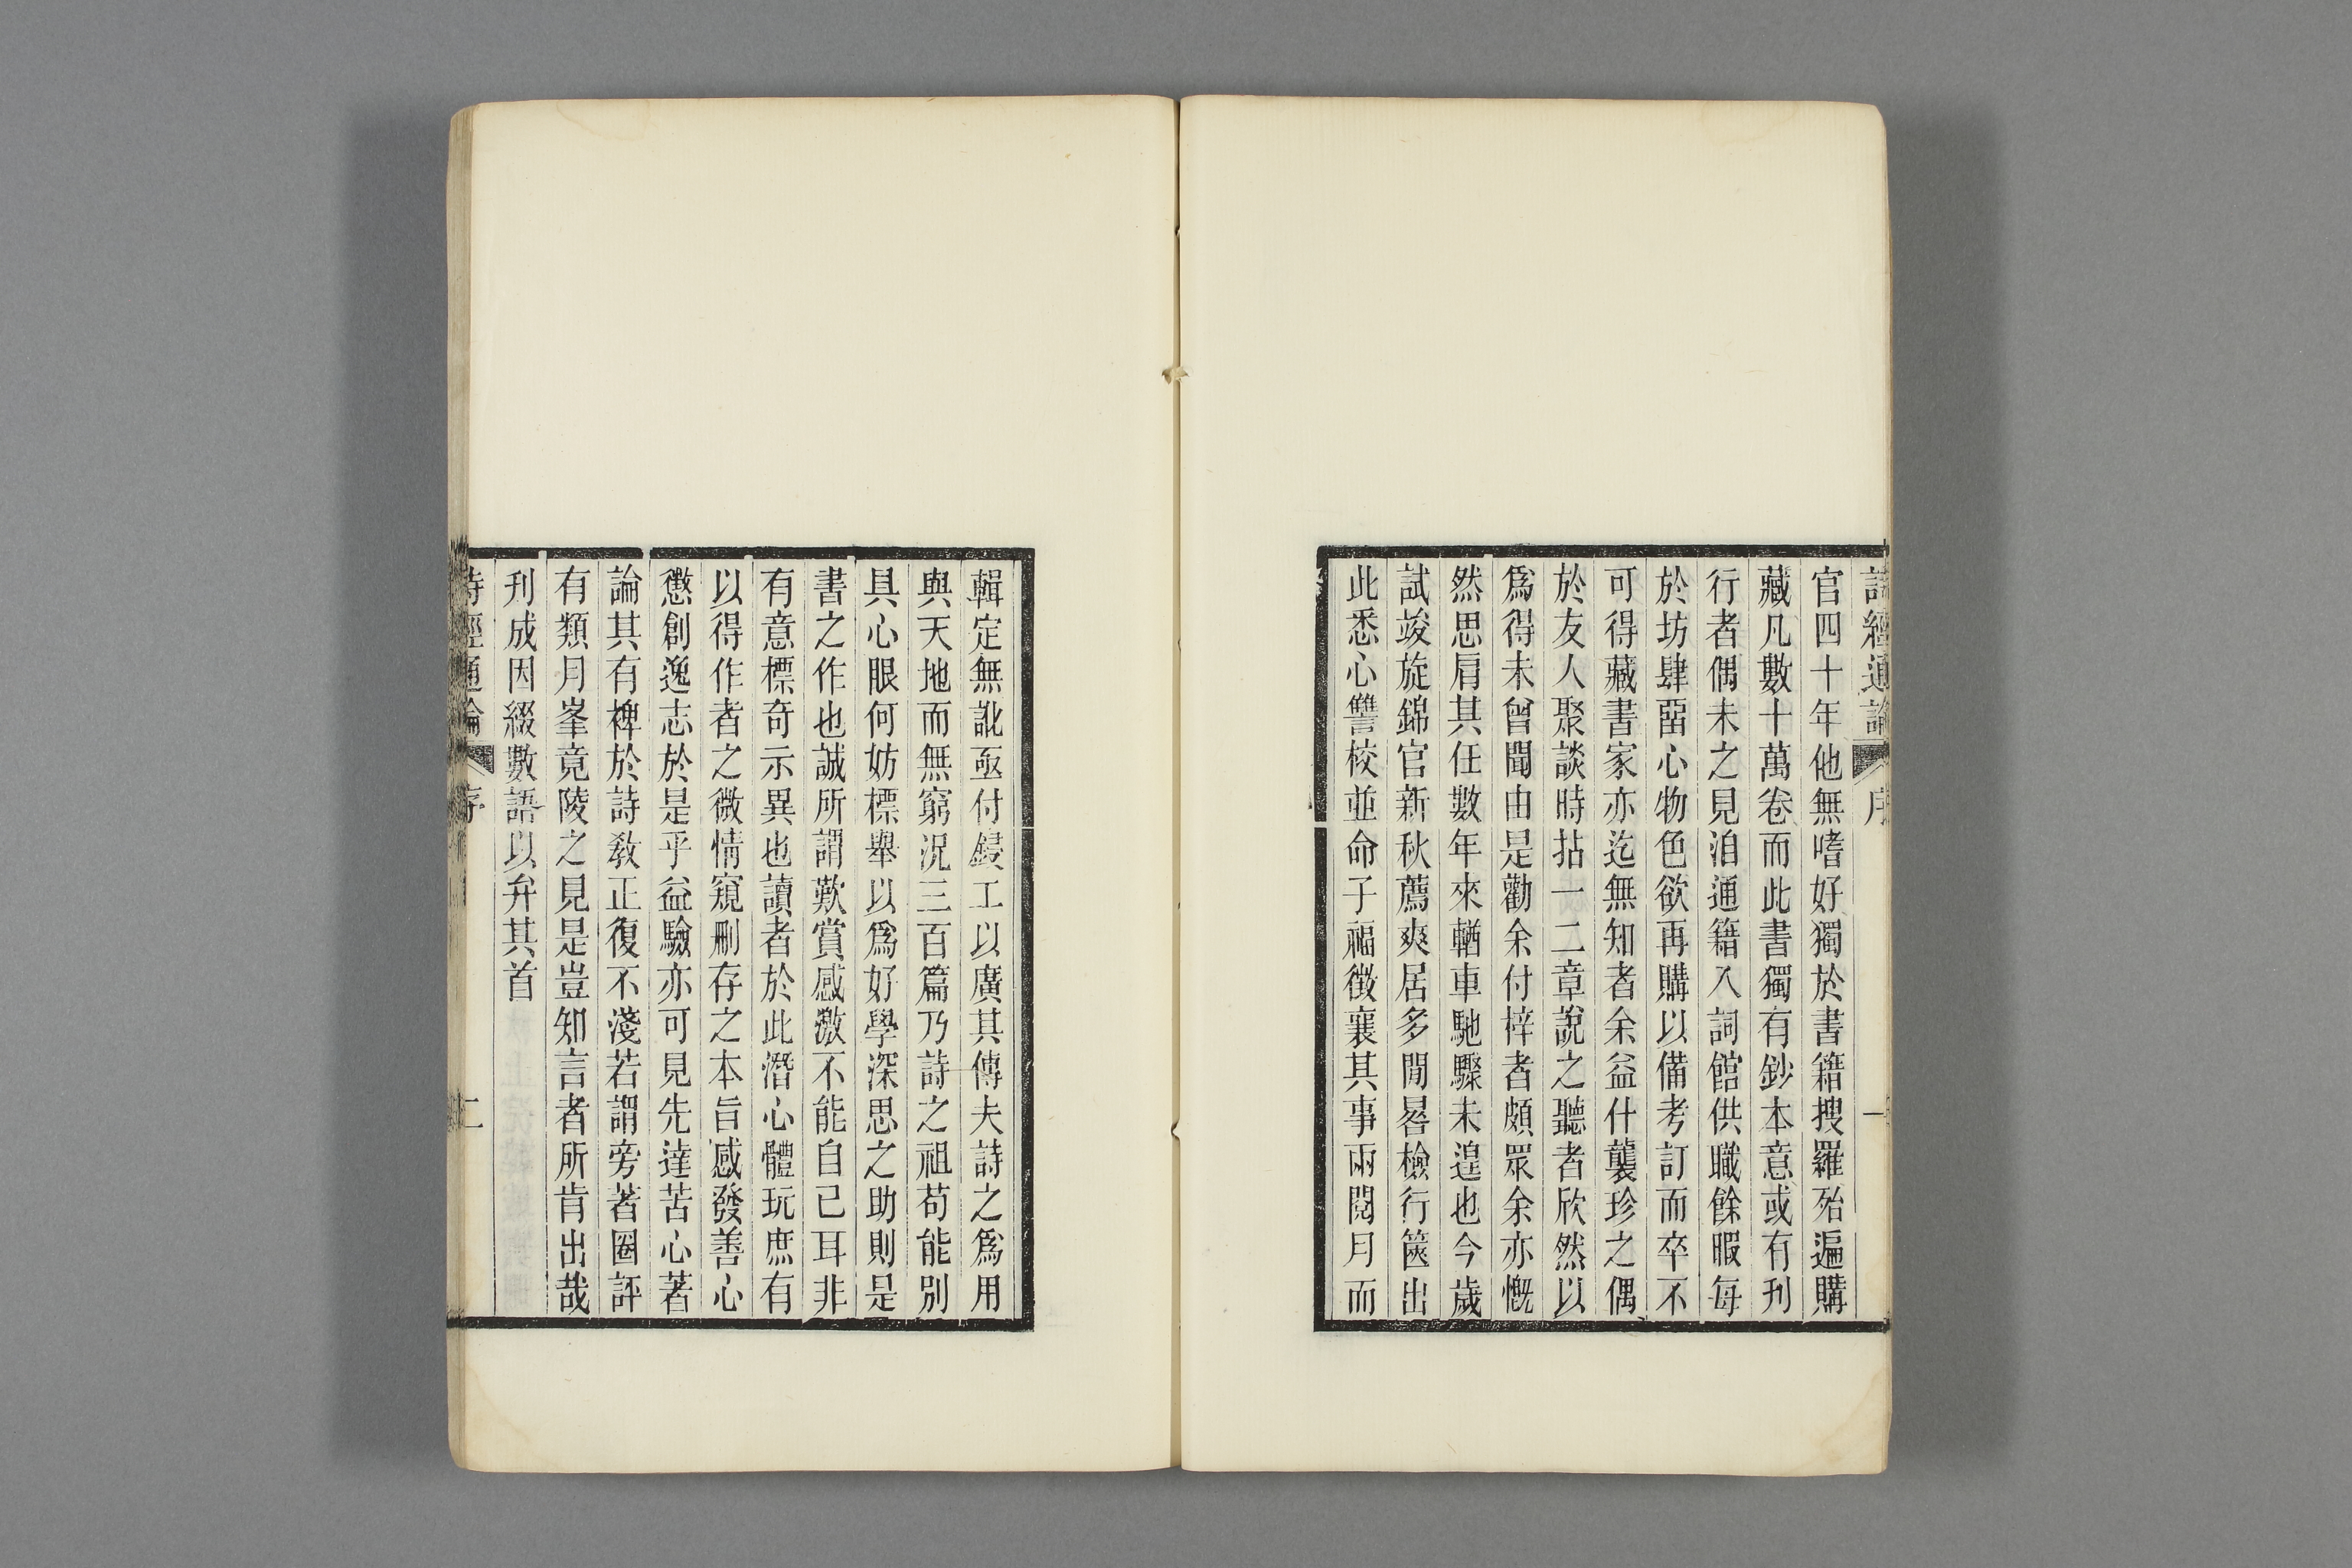 詩經通論 序 一
官四十年他無嗜好獨於書籍搜羅殆遍購
藏凡數十萬卷而此書獨有鈔本意或有刋
行者偶未之見洎通籍入詞館供職餘暇每
於坊肆畱心物色欲再購以備考訂而卒不
可得藏書家亦迄無知者余益什襲珍之偶
於友人聚談時拈一二章說之聽者欣然以
爲得未曾聞由是勸余付梓者頗眾余亦慨
然思肩其任數年來輶車馳驟未遑也今歲
試竣旋錦官新秋薦爽居多閒晷檢行篋出
此悉心讐校並命子福徵襄其事兩閱月而
輯定無訛亟付鋟工以廣其傳夫詩之爲用
與天地而無窮況三百篇乃詩之祖苟能別
具心眼何妨標舉以爲好學深思之助則是
書之作也誠所謂歎賞感激不能自已耳非
有意標奇示異也讀者於此潛心體玩庶有
以得作者之微情窺刪存之本旨感發善心
懲創逸志於是乎益驗亦可見先達苦心著
論其有裨於詩敎正復不淺若謂旁著圈評
有類月峯竟陵之見是豈知言者所肯出哉
刋成因綴數語以弁其首
詩經通論 序 二